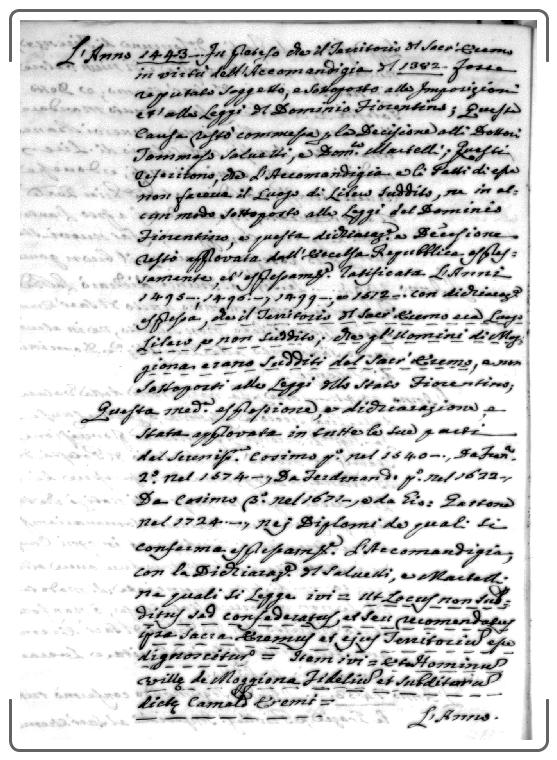 L'Anno 1443 – In pretesa che il Territorio del Sacr'Eremo
in virtù dell'Accomandigia del 1382 fosse
reputato Soggetto, e Sottoposto alle Imposizioni
et alle Leggi del Dominio Fiorentino; Questa
Causa restò commessa p la Decisione alli Dottori
Tommaso Salvetti, e Dom:co Martelli; Questi
riferirono, che L'Accomandigia e li Patti di essa
non faceva il Luogo di Libero Suddito, ne in al=
cun modo Sottoposto alle Leggi del Dominio
Fiorentino, e questa dichiaraz.e e Decessione
restò approvata dall'Eccelsa Repubblica espres=
samente, et espressam.e Ratificata L'Anni
1495–, 1496–, 1499–, e 1512– con dichiaraz.e
espressa, che il Territorio del Sacr'Eremo era Luogo
Libero e non Suddito, che gl'Uomini di Mog=
giona erano Sudditi del Sacr'Eremo, e non
Sottoposti alle Leggi dello Stato Fiorentino;
Questa med.a espressione, e dichiarazione è
stata approvata in tutte le sue parti
dal Sereniss.o Cosimo p.o nel 1540–, Da Fran.co
2.o nel 1574–, Da Ferdinando p.o nel 1622–,
Da Cosimo 3.o nel 1671–, e da Gio: Gastone
nel 1724–, nej Diplomi de quali si
conferma espressam.e L'Accomandigia,
con la Dichiaraz.e del Salvetti, e Martelli
ne quali si Legge ivi = Ut Locus non sub=
ditus sed confederatus, et seu recomendatus
ipsa Sacra Eremus et ejus Territoriu esse
dignoscitur = Item ivi = Et Hominu
villę de Moggiona Fideliu et Subditoru
dictę Camald. Eremi =
L'Anno.